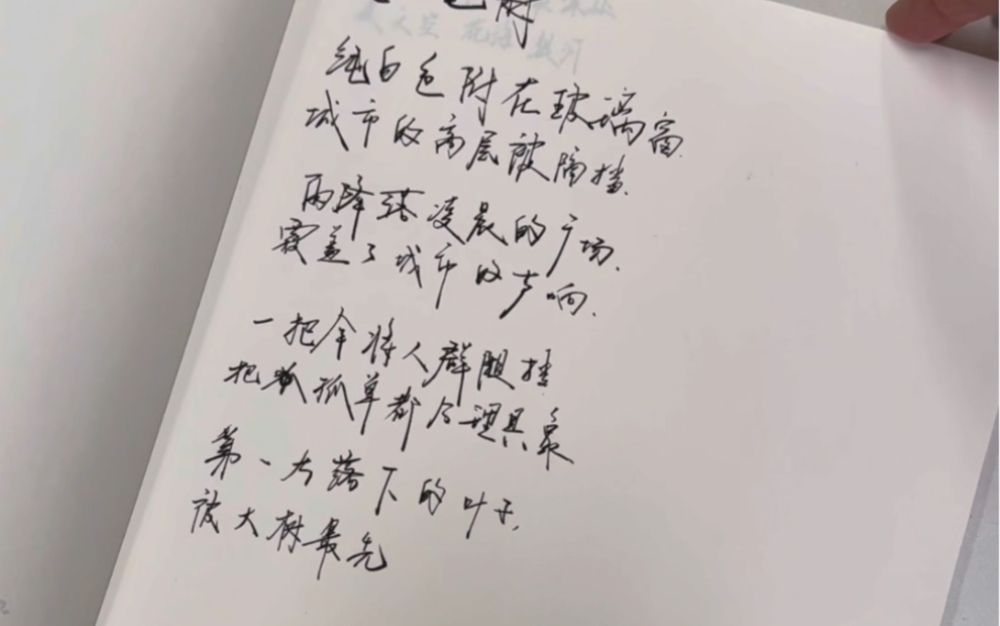 纯白色附在玻璃窗
城市的高层被隔挡
雨降落凌晨的广场
覆盖了城市的声响
一把伞将人群阻挡
把孤单都合理具象
第一片落下的叶子
被大树最先